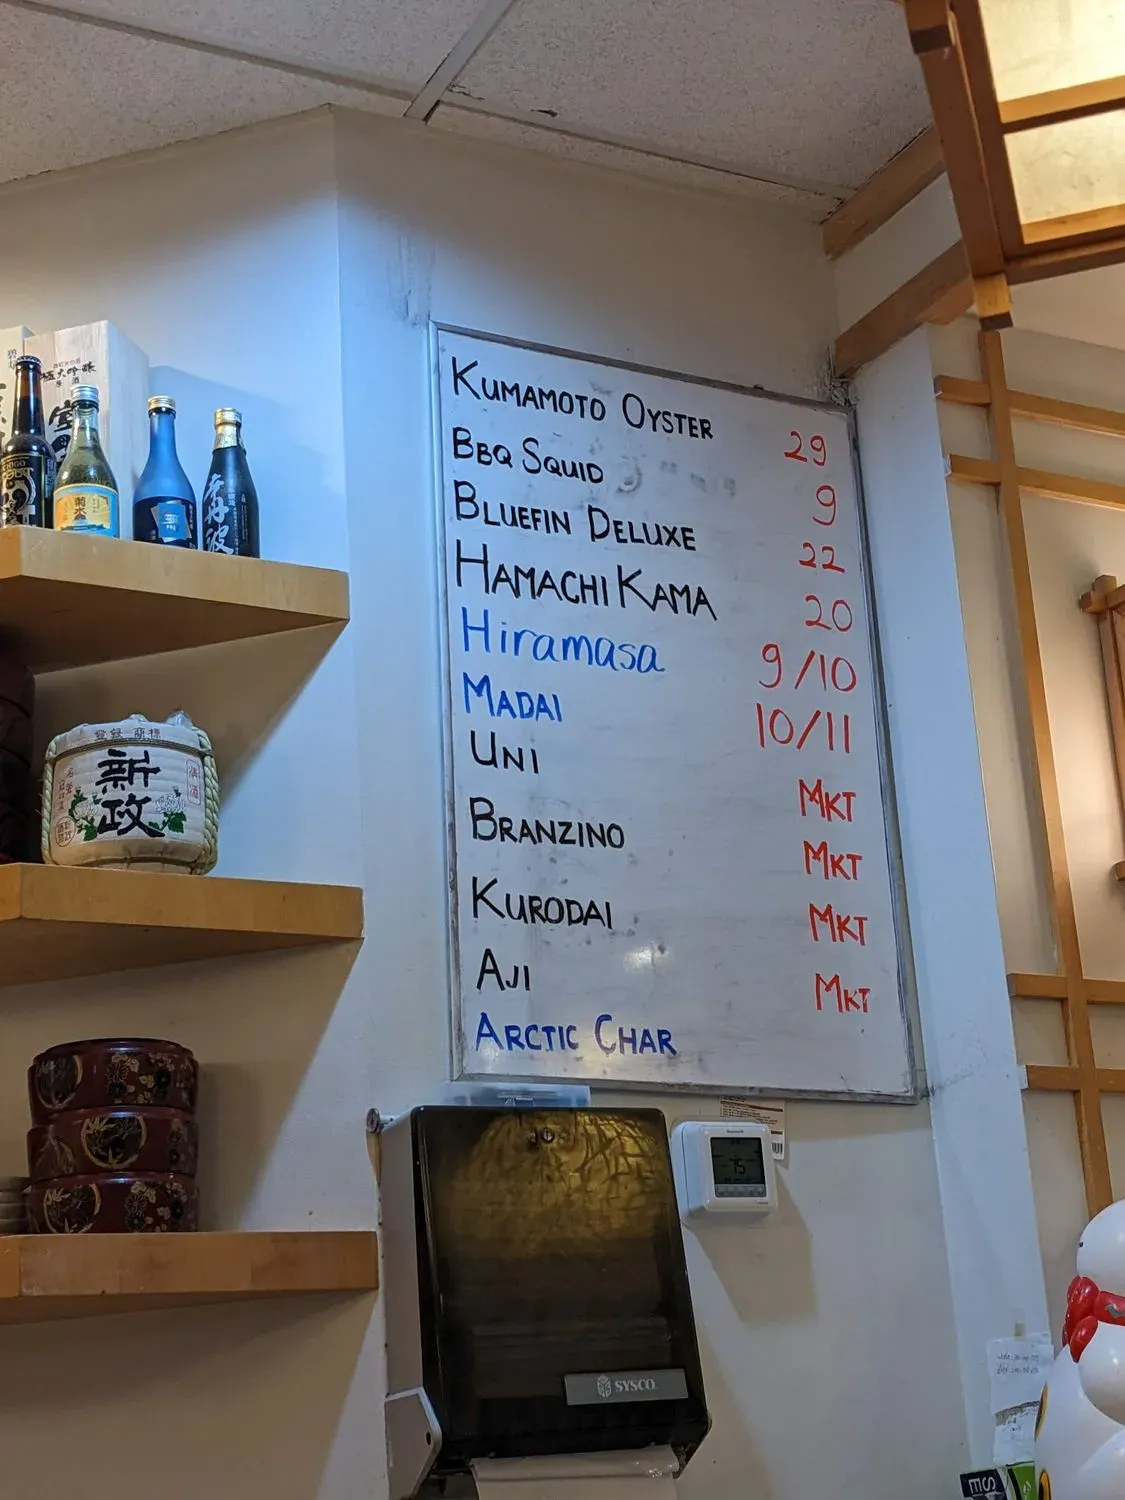 KUMAMOTO OYSTER 29
BBQ SQUID 9
BLUEFIN DELUXE 22
HAMACHI KAMA 20
Hiramasa 9/10
MADAI 10/11
UNI MKT
BRANZINO MKT
KURODAI MKT
AJI MKT
ARCTIC CHAR
極大吟醸
菊水
登録 商標
新
政
清酒
75
SYSCO